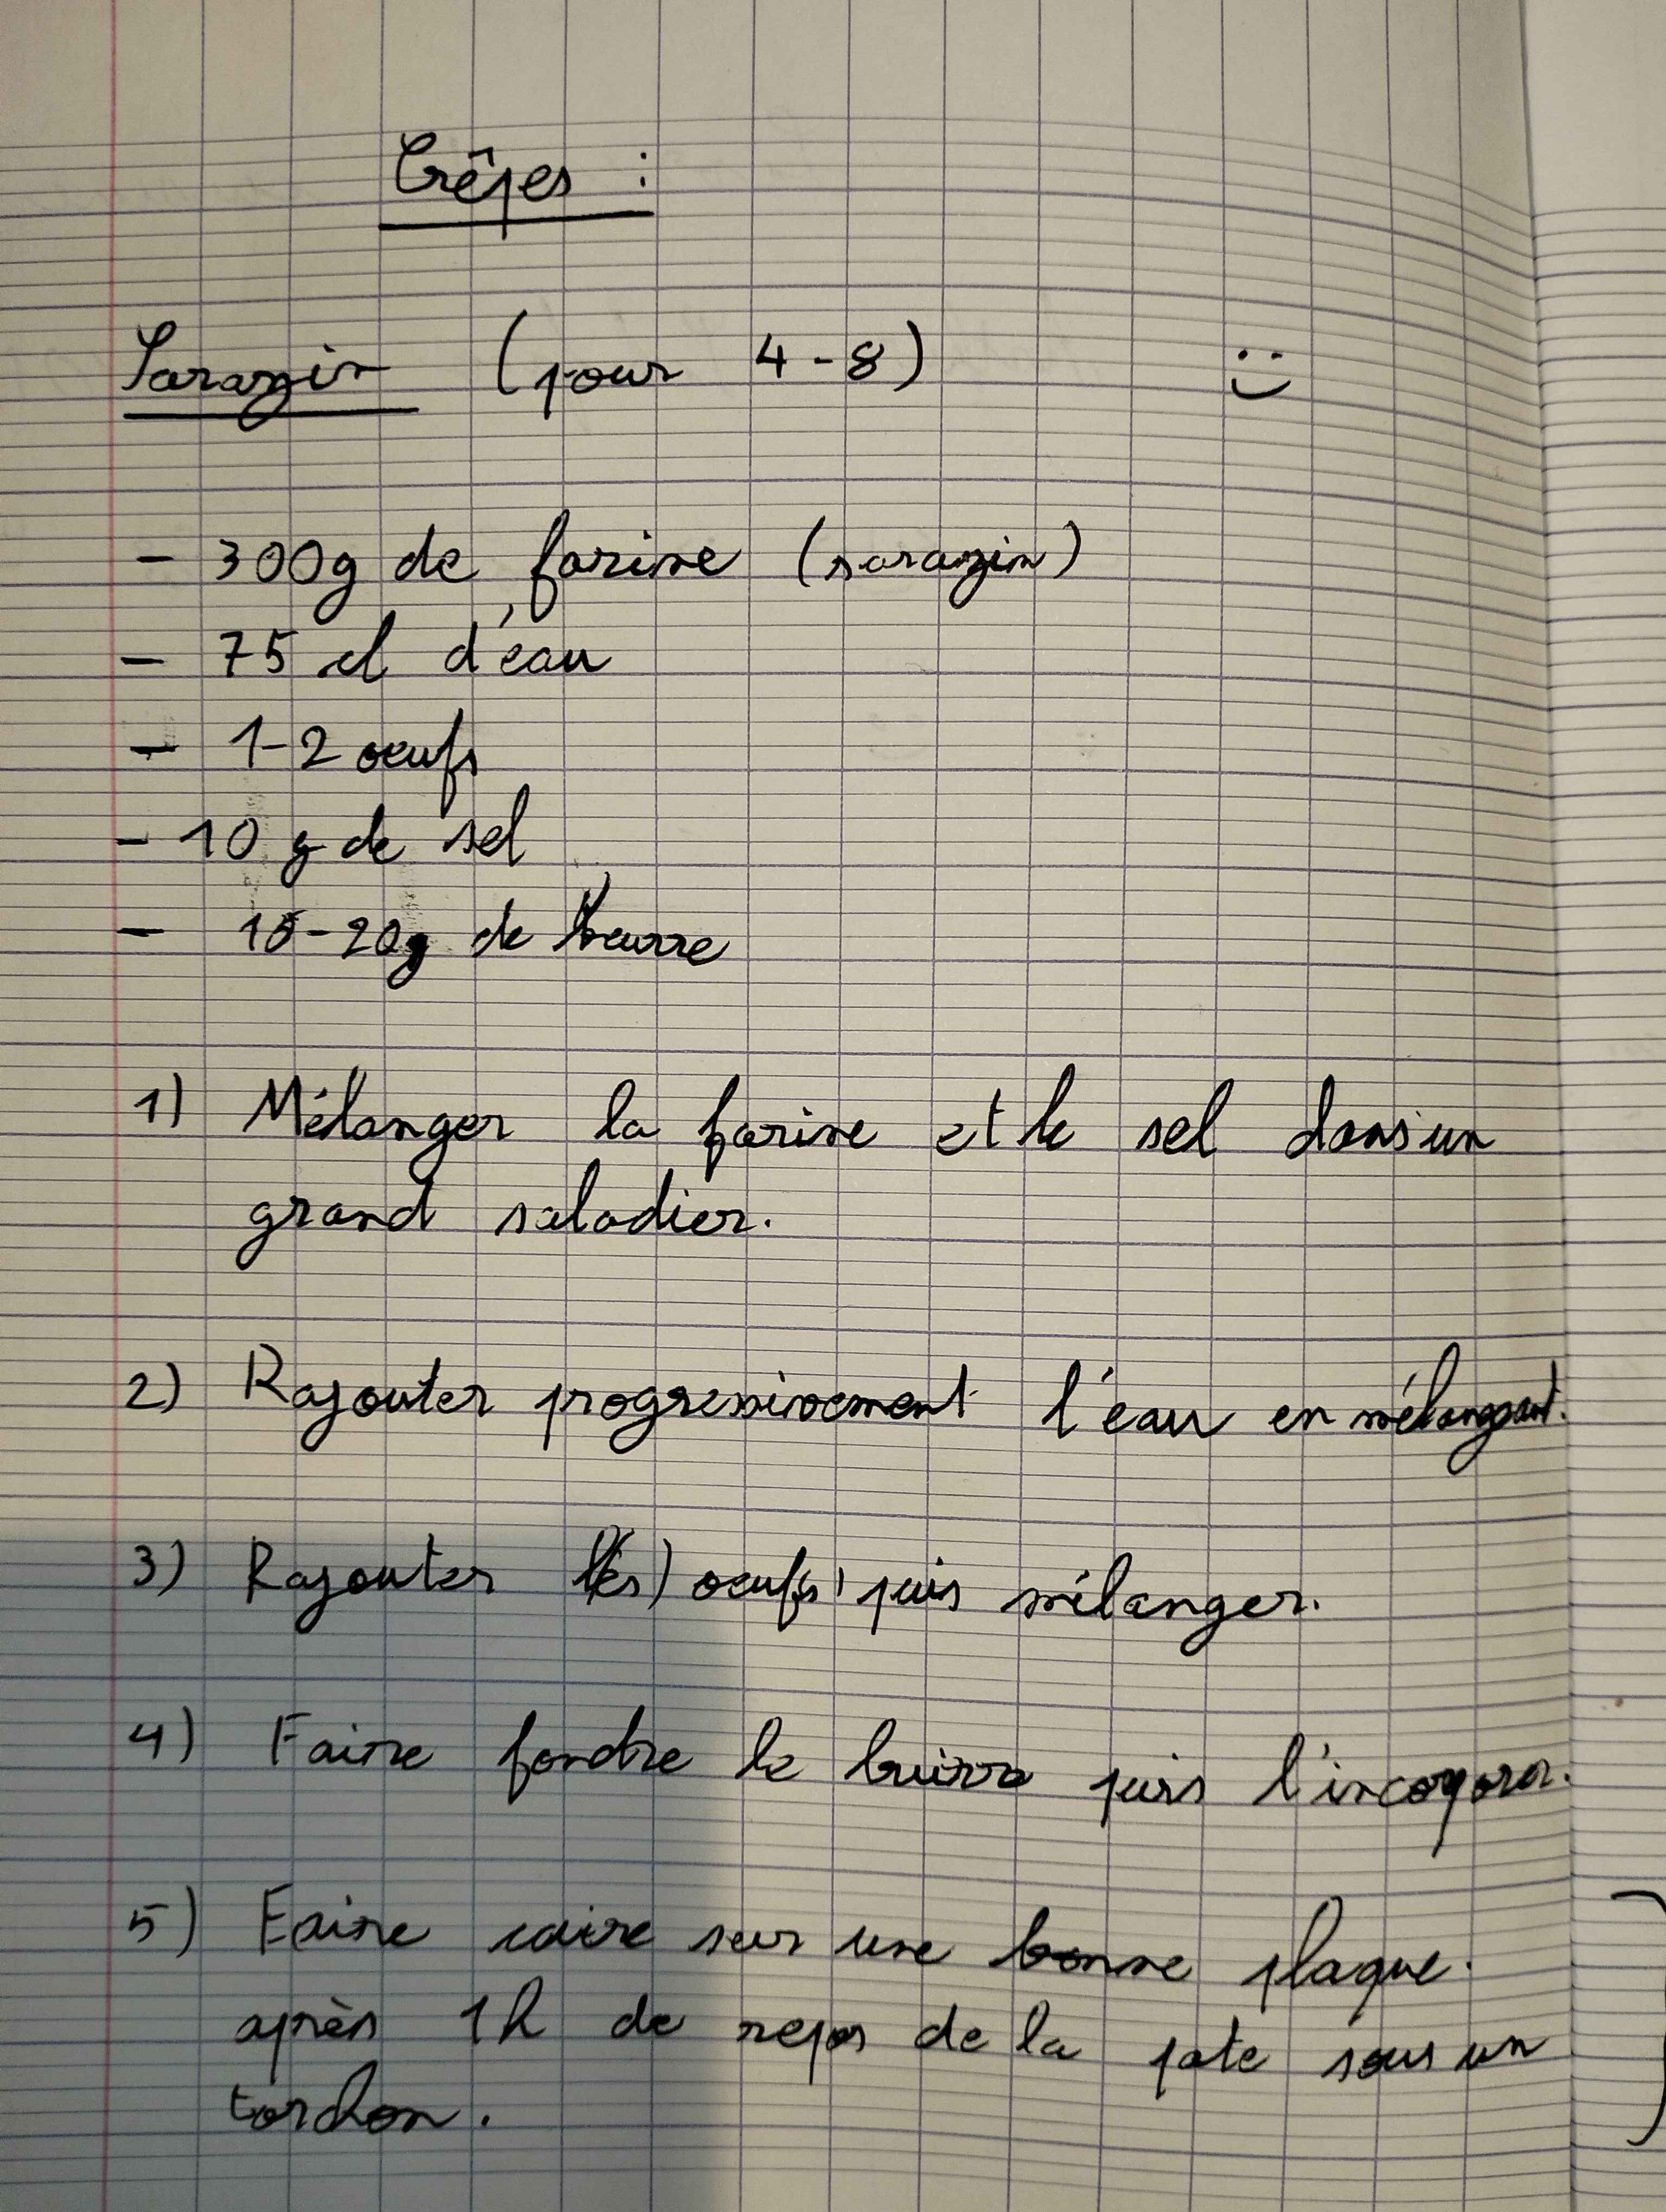 Crêpes :
Sarazin (pour 4-8) :)
- 300g de farine (sarazin)
- 75 cl d'eau
- 1-2 oeufs
- 10 g de sel
- 15-20g de beurre
1) Mélanger la farine et le sel dans un
grand saladier.
2) Rajouter progressivement l'eau en mélangeant.
3) Rajouter l(es) oeufs puis mélanger.
4) Faire fondre le beurre puis l'incorporer.
5) Faire cuire sur une bonne plaque.
après 1h de repos de la pate sous un
torchon.